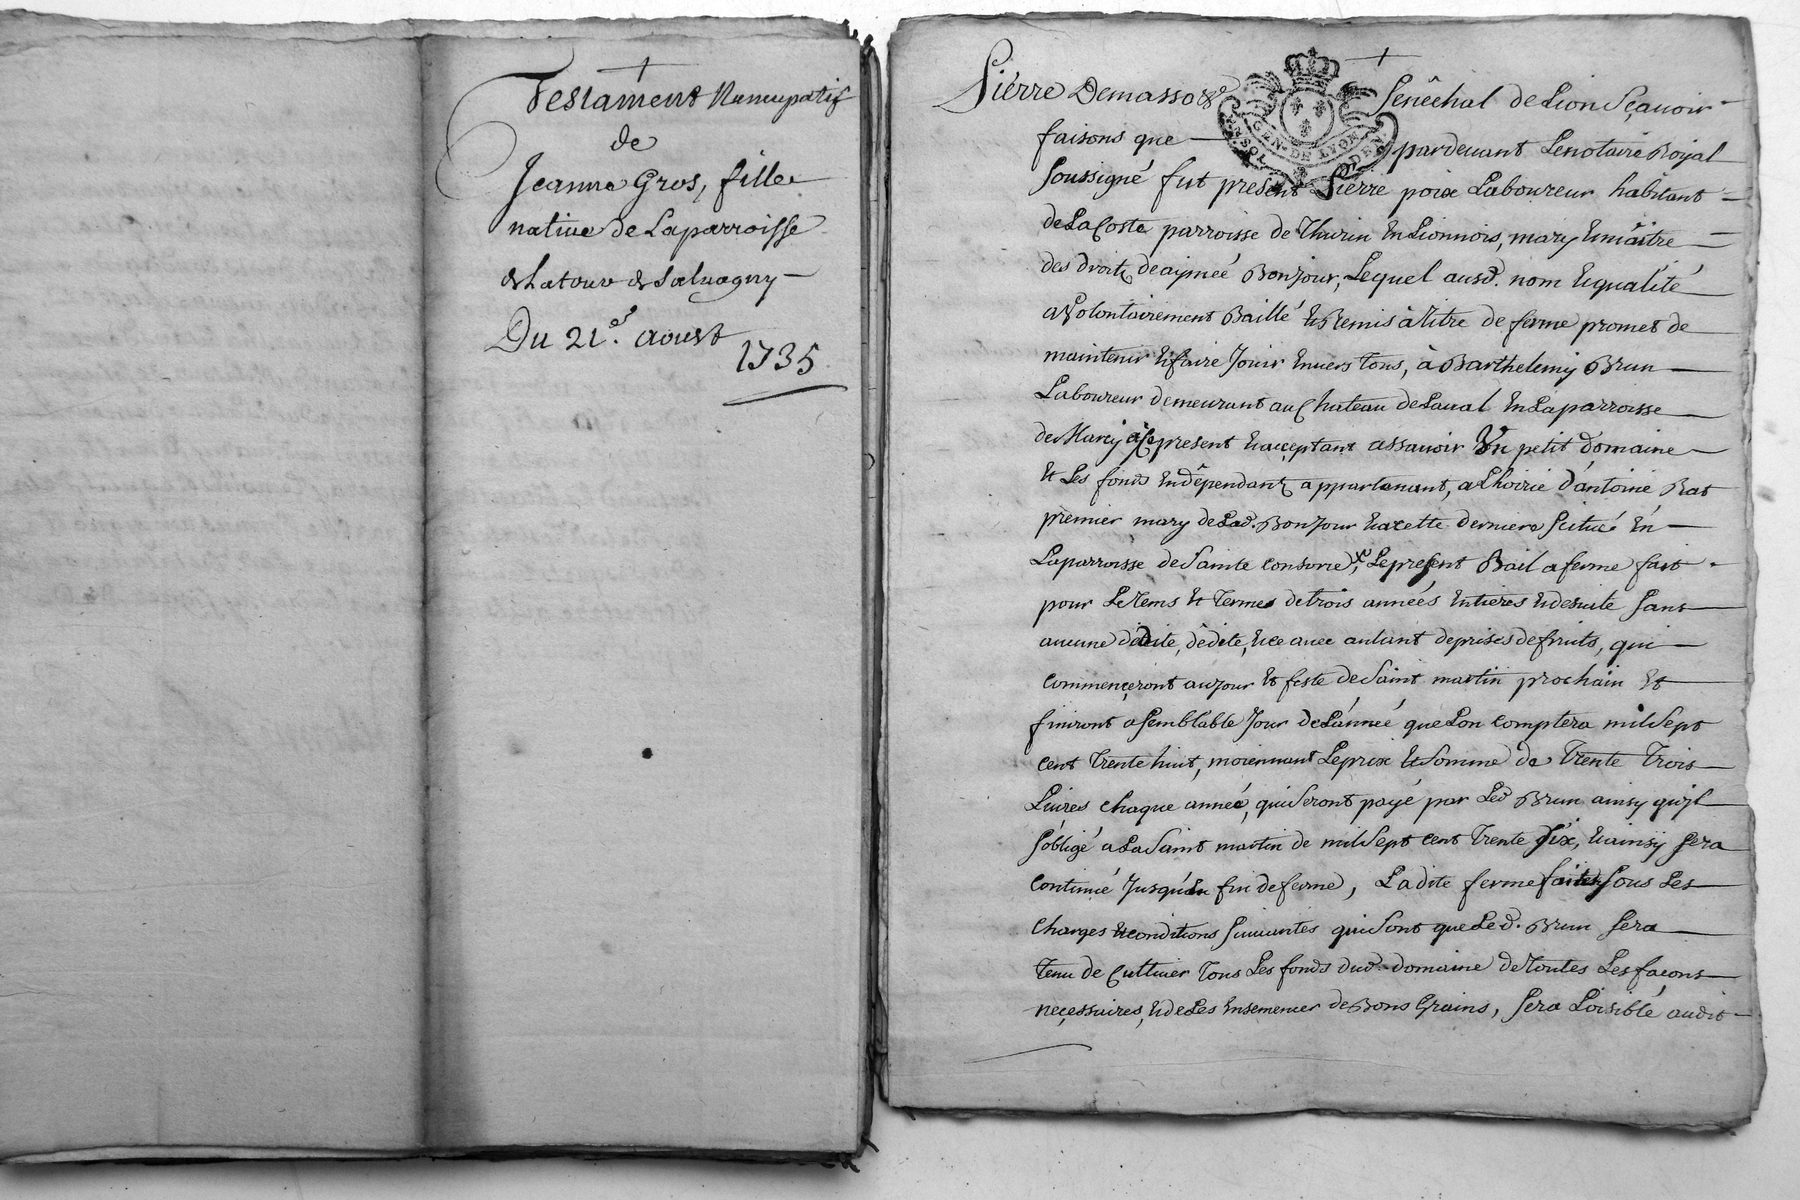 Testament Nuncupatif
de
Jeanne Gros, fille
native de Laparroisse
de Latour de Salvagny
Du 21e. aoust
1735
Pierre Demasso &c
Senêchal de Lion Sçavoir
faisons que
pardevant Lenotaire Royal
GEN. DE LYON
Soussigné fut present Pierre poix Laboureur habitant
deLaCoste parroisse de Thurin En Lionnois, mary Emaître
des droits deaymeé Bonjour, Lequel ausd. nom Equalité
aVolontairement Baillé EtRemis àtitre de ferme promet de
maintenir Etfaire Jouir Envers tous, à Barthelemy Brun
Laboureur demeurant auChateau deLaval En Laparroisse
de Marcy àCepresent Eacceptant assavoir Un petit domaine
Et Les fonds Endêpendantz appartenant, a Lhoirie d'antoine Rat
premier mary deLad. Bonjour Eacette derniere scitué En
Laparroisse deSainte Consorce, Lepresent Bail aferme fait
pour Letems Et termes detrois années Entieres Edesuite sans
aucune dédite, dêdite, Ece avec autant deprises defruits, qui
Commençeront aujour Et feste deSaint martin prochain Et
finiront asemblable Jour deL'année queLon Comptera milSept
cent trente huit, moiennant Leprix EtSomme de trente trois
Livres chaque année, quiSeront payé par Led Brun ainsy quil
s'obligé aLaSaint martin de milSept cent trente Six, Eainsy sera
continué Jusqu'en fin deferme, Ladite ferme faites sous Les
charges Econditions suivantes quiSont queLed. Brun sera
tenu de Cultiver tous Les fonds dud. domaine detoutes Les façons
neçessaires, EdeLes Ensemencer deBons Grains, sera Loisible audit